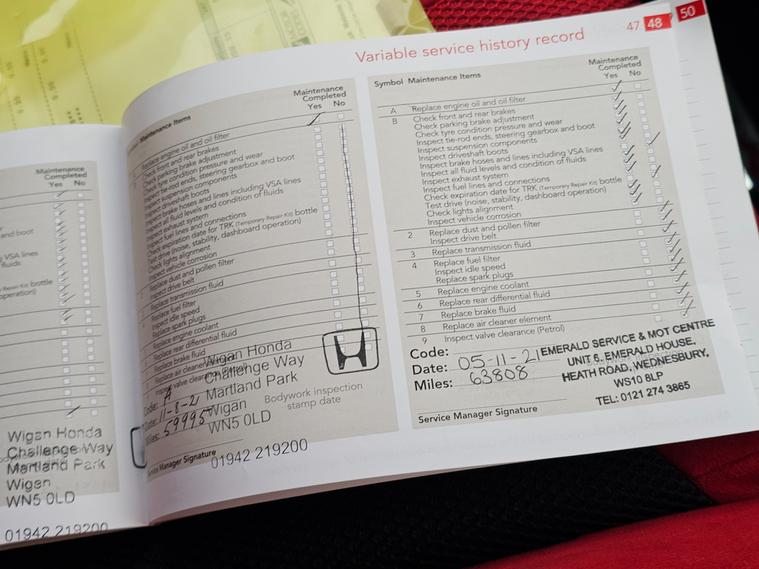 Variable service history record
47 48 50
Maintenance
Completed
Yes No
nd boot
VSA lines
fluids
bottle
operation)
Wigan Honda
Challenge Way
Martland Park
Wigan
WN5 0LD
01942 219200
Maintenance Items
Maintenance
Completed
Yes No
Replace engine oil and oil filter
Check front and rear brakes
Check parking brake adjustment
Check tyre condition pressure and wear
Inspect tie-rod ends, steering gearbox and boot
Inspect suspension components
Inspect driveshaft boots
Inspect brake hoses and lines including VSA lines
Inspect all fluid levels and condition of fluids
Inspect exhaust system
Inspect fuel lines and connections
Check expiration date for TRK (Temporary Repair Kit) bottle
Test drive (noise, stability, dashboard operation)
Check lights alignment
Inspect vehicle corrosion
Replace dust and pollen filter
Inspect drive belt
Replace transmission fluid
Replace fuel filter
Inspect idle speed
Replace spark plugs
Replace engine coolant
Replace rear differential fluid
Replace brake fluid
Replace air cleaner
Inspect valve clearance
Code: A
Date: 11-8-21
Miles: 59995
Wigan Honda
Challenge Way
Martland Park
Wigan
WN5 0LD
Bodywork inspection
stamp date
Service Manager Signature
01942 219200
Symbol Maintenance Items
Maintenance
Completed
Yes No
A Replace engine oil and oil filter
B Check front and rear brakes
Check parking brake adjustment
Check tyre condition pressure and wear
Inspect tie-rod ends, steering gearbox and boot
Inspect suspension components
Inspect driveshaft boots
Inspect brake hoses and lines including VSA lines
Inspect all fluid levels and condition of fluids
Inspect exhaust system
Inspect fuel lines and connections
Check expiration date for TRK (Temporary Repair Kit) bottle
Test drive (noise, stability, dashboard operation)
Check lights alignment
Inspect vehicle corrosion
2 Replace dust and pollen filter
Inspect drive belt
3 Replace transmission fluid
4 Replace fuel filter
Inspect idle speed
Replace spark plugs
5 Replace engine coolant
6 Replace rear differential fluid
7 Replace brake fluid
8 Replace air cleaner element
9 Inspect valve clearance (Petrol)
Code:
Date: 05-11-21
Miles: 63808
EMERALD SERVICE & MOT CENTRE
UNIT 6, EMERALD HOUSE,
HEATH ROAD, WEDNESBURY,
WS10 8LP
TEL: 0121 274 3865
Service Manager Signature